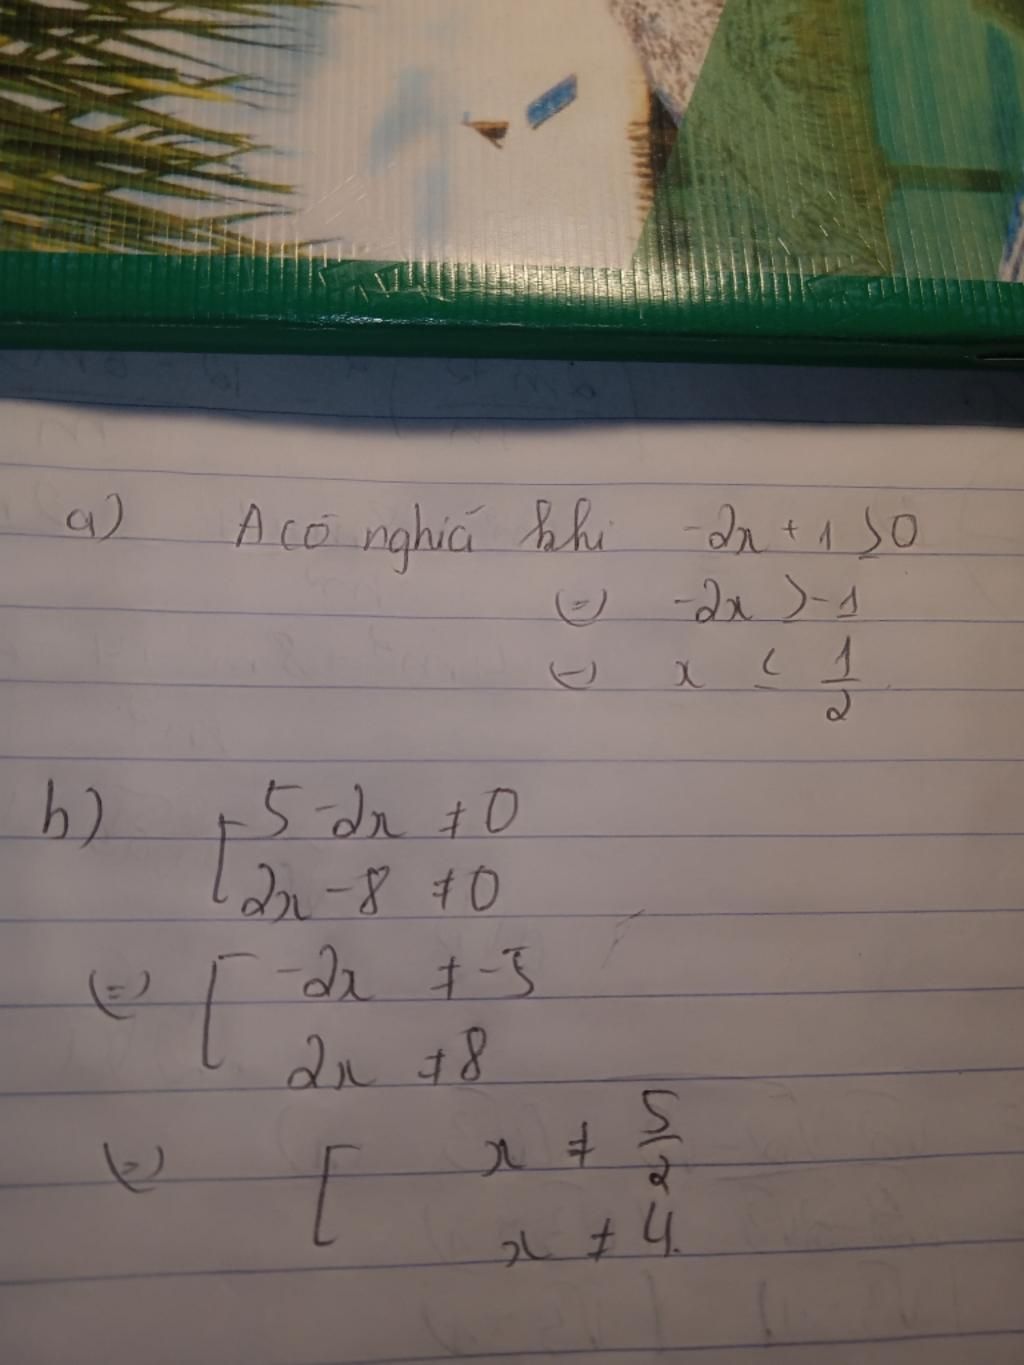 a) A có nghĩa khi -2x + 1 ≥ 0
(=) -2x > -1
(=) x ≤ 1/2
b) [ 5-2x ≠ 0
2x - 8 ≠ 0
(=) [ -2x ≠ -5
2x ≠ 8
(=) [ x ≠ 5/2
x ≠ 4.